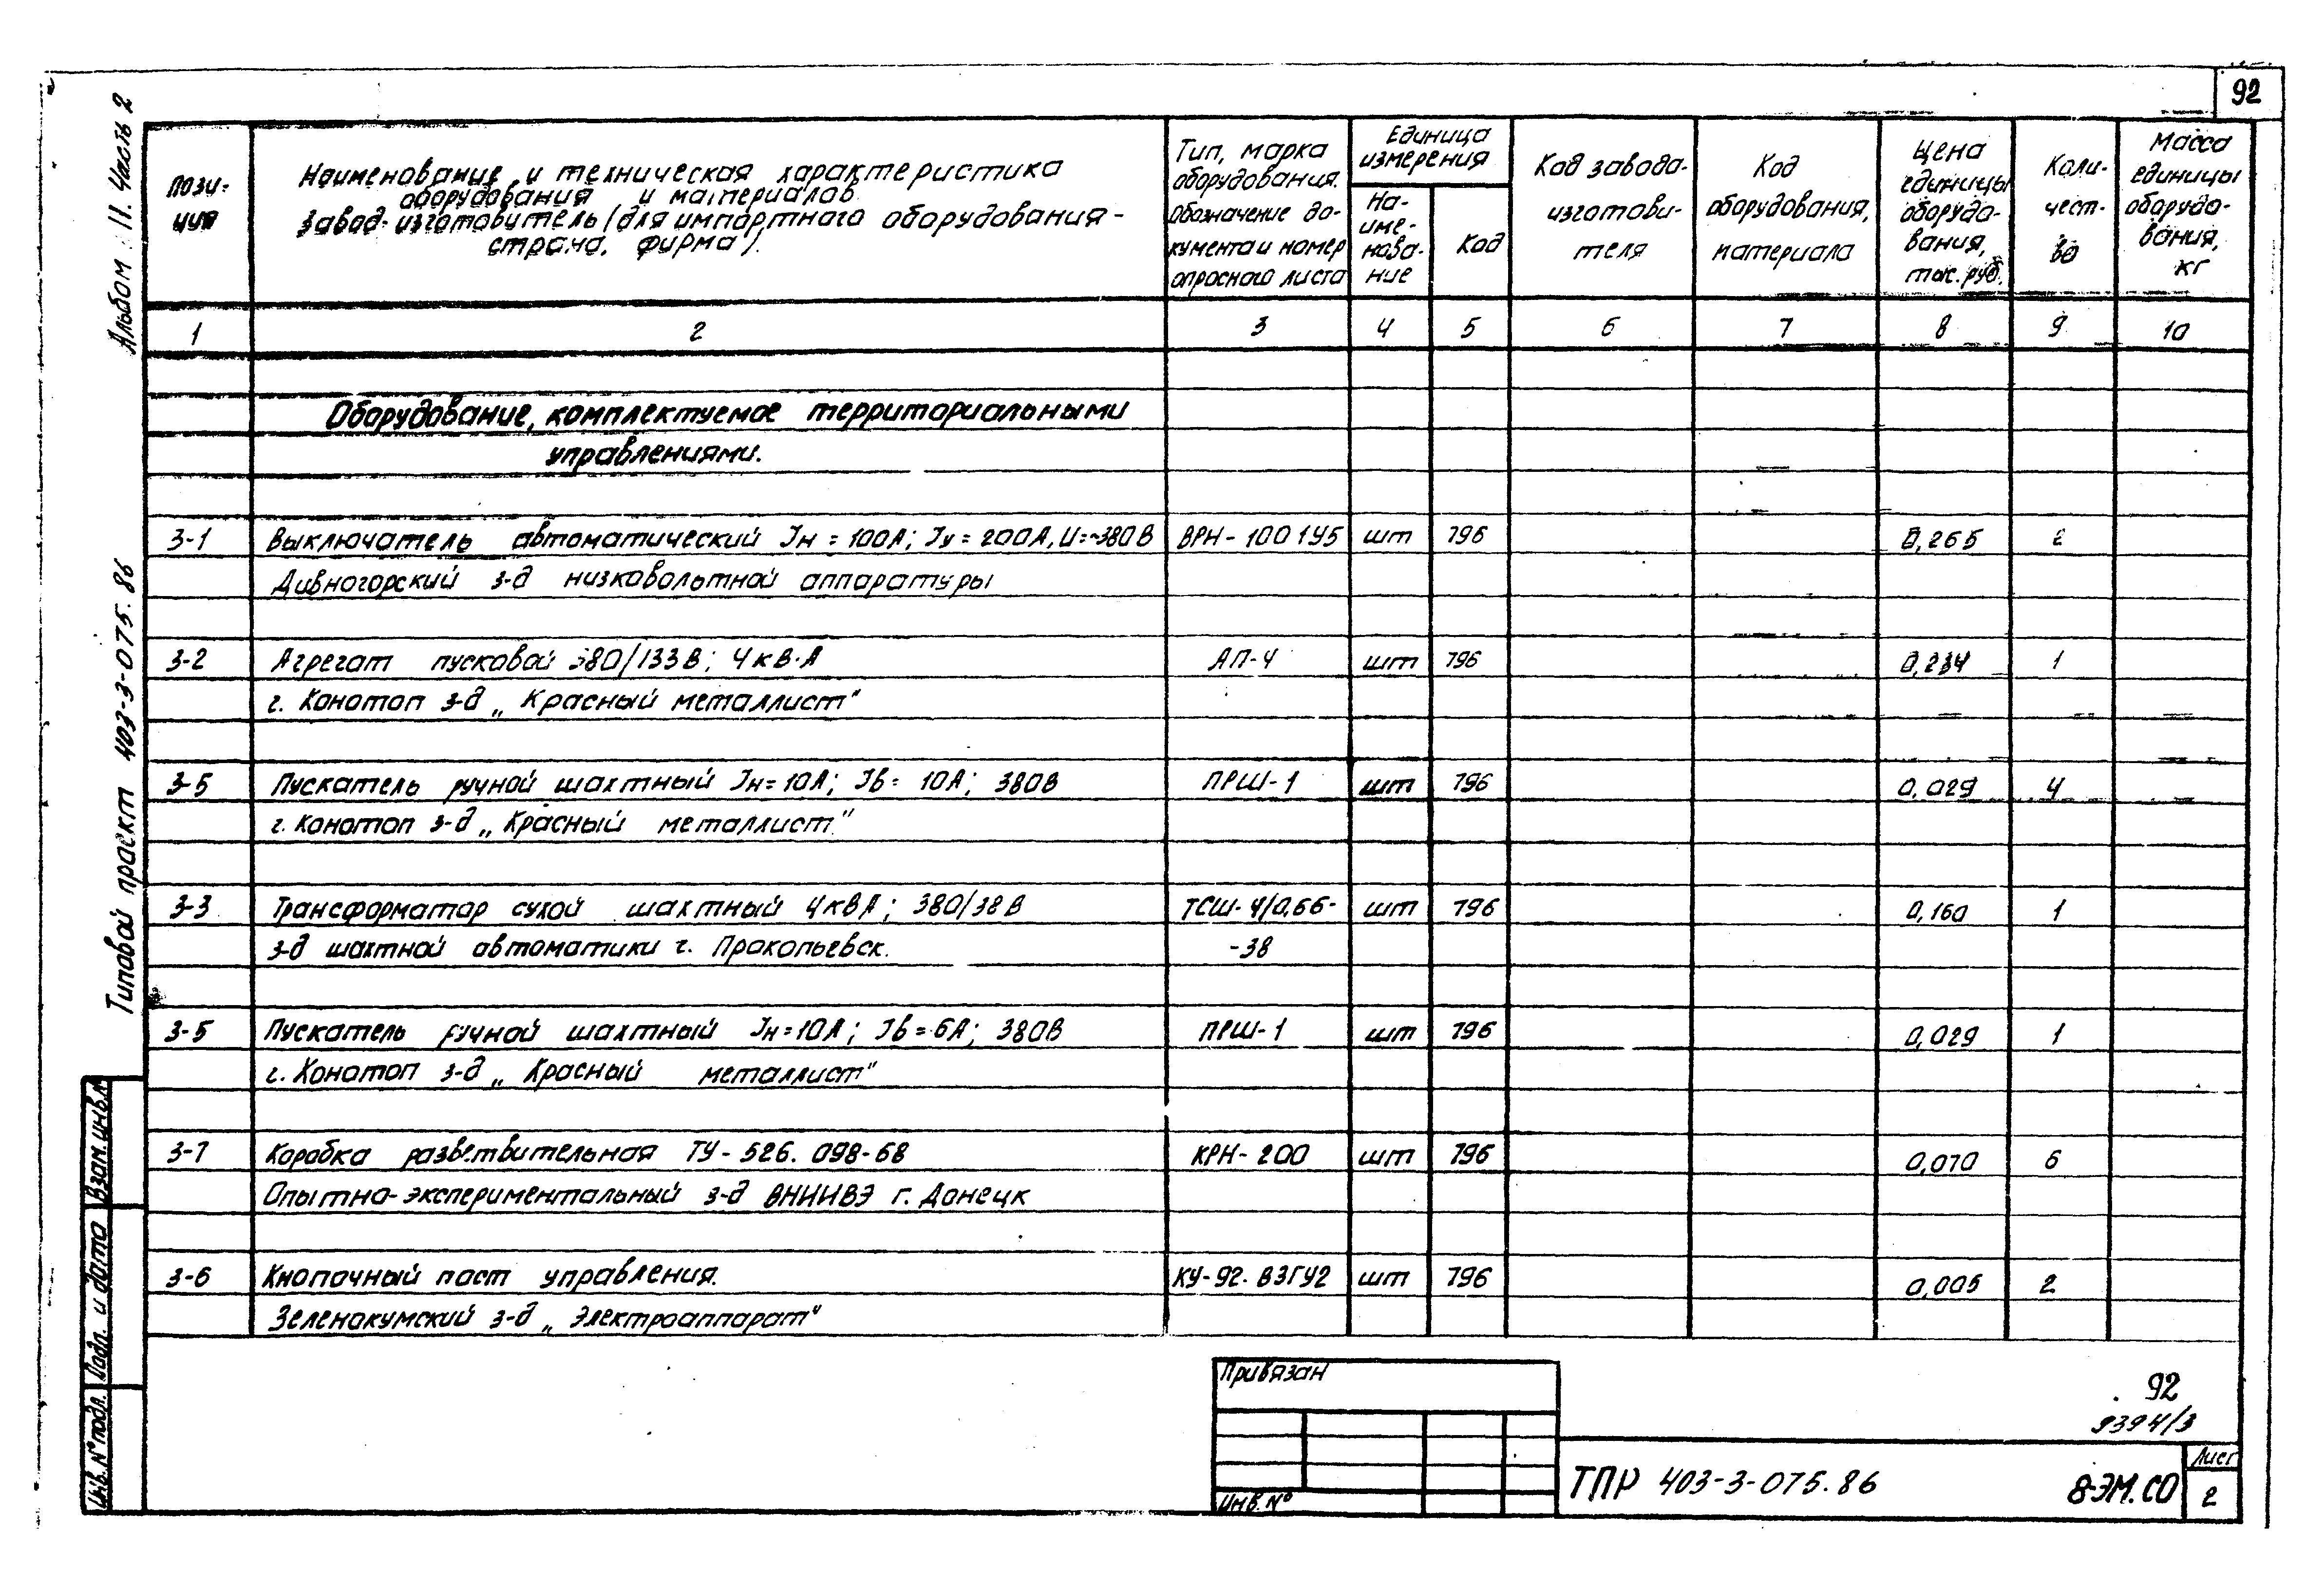 92
Альбом II. Часть 2
Типовой проект 403-3-075.86
Пози-
ция
Наименование и техническая характеристика
оборудования и материалов
Завод-изготовитель (для импортного оборудования -
страна, фирма).
Тип, марка
оборудования.
Обозначение до-
кумента и номер
опросного листа
Единица
измерения
На-
име-
нова-
ние
Код
Код завода-
изготови-
теля
Код
оборудования,
материала
Цена
единицы
оборудо-
вания,
тыс. руб.
Коли-
чест-
во
Масса
единицы
оборудо-
вания,
кг
1 2 3 4 5 6 7 8 9 10
Оборудование, комплектуемое территориальными
управлениями.
3-1 Выключатель автоматический Iн = 100А; Iу = 200А, U=~380В ВРН-100 1У5 шт 796 0,265 2
Дивногорский з-д низковольтной аппаратуры
3-2 Агрегат пусковой 380/133В; 4кВ·А АП-4 шт 796 0,234 1
г. Конотоп з-д „Красный металлист"
3-5 Пускатель ручной шахтный Iн=10А; Iв= 10А; 380В ПРШ-1 шт 796 0,029 4
г. Конотоп з-д „Красный металлист"
3-3 Трансформатор сухой шахтный 4кВА; 380/38В ТСШ-4/0,66- шт 796 0,160 1
з-д шахтной автоматики г. Прокопьевск. -38
3-5 Пускатель ручной шахтный Iн=10А; Iв=6А; 380В ПРШ-1 шт 796 0,029 1
г. Конотоп з-д „Красный металлист"
3-7 Коробка разветвительная ТУ-526.098-68 КРН-200 шт 796 0,070 6
Опытно-экспериментальный з-д ВНИИВЭ г. Донецк
3-6 Кнопочный пост управления. КУ-92. ВЗГУ2 шт 796 0,005 2
Зеленокумский з-д „Электроаппарат"
Взам. инв. №
Подп. и дата
Инв. № подл.
Привязан
Инв. №
92
9394/3
ТПР 403-3-075.86
8-ЭМ.СО
Лист
2